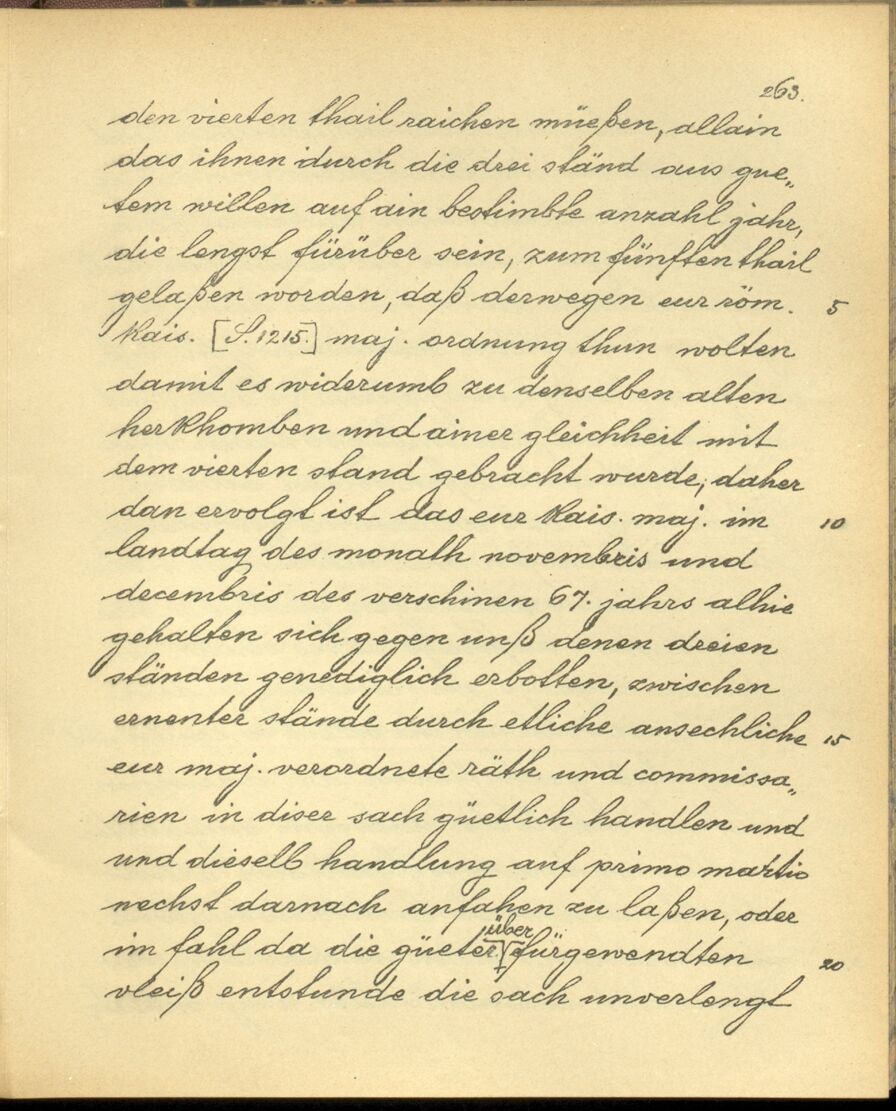 263.
den vierten thail raichen müeßen, allain
das ihnen durch die drei ständ aus gue„
tem willen auf ain bestimbte anzahl jahr,
die lengst fürüber sein, zum fünften thail
gelaßen worden, daß derwegen eur röm. 5
kais. [S. 1215.] maj. ordnung thun wolten
damit es widerumb zu denselben alten
herkhomben und ainer gleichheit mit
dem vierten stand gebracht wurde; daher
dan ervolgt ist das eur kais. maj. im 10
landtag des monath novembris und
decembris des verschinen 67. jahrs alhie
gehalten sich gegen unß denen dreien
ständen genediglich erbotten, zwischen
ernenter stände durch etliche ansechliche 15
eur maj. verordnete räth und commissa„
rien in diser sach güetlich handlen und
und dieselb handlung auf primo martio
nechst darnach anfahen zu laßen, oder
im fahl da die güeter über fürgewendten 20
vleiß entstunde die sach unverlengt